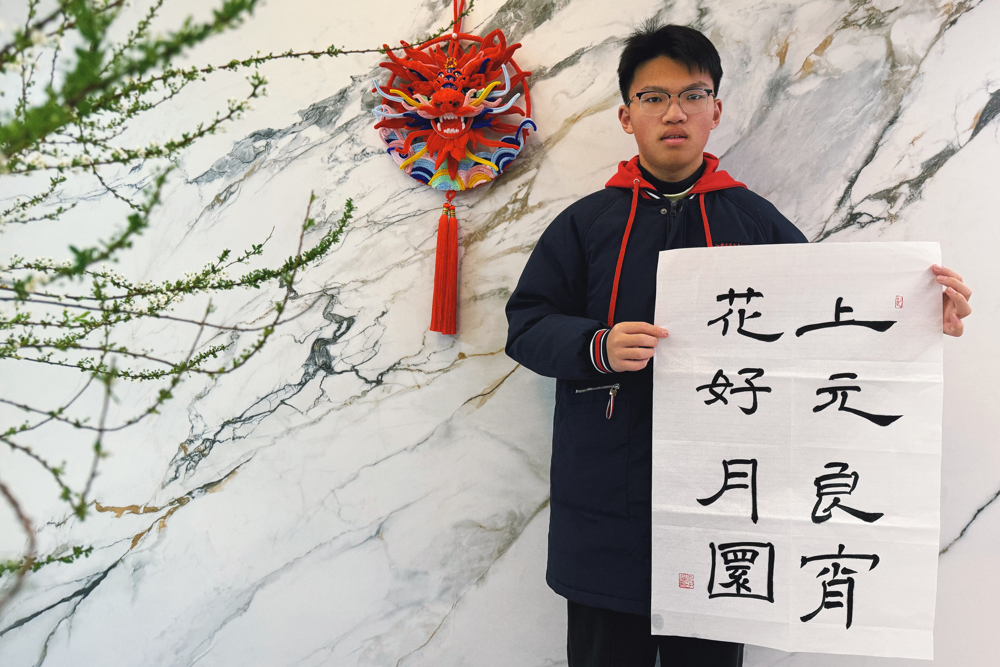 上元良宵
花好月圜